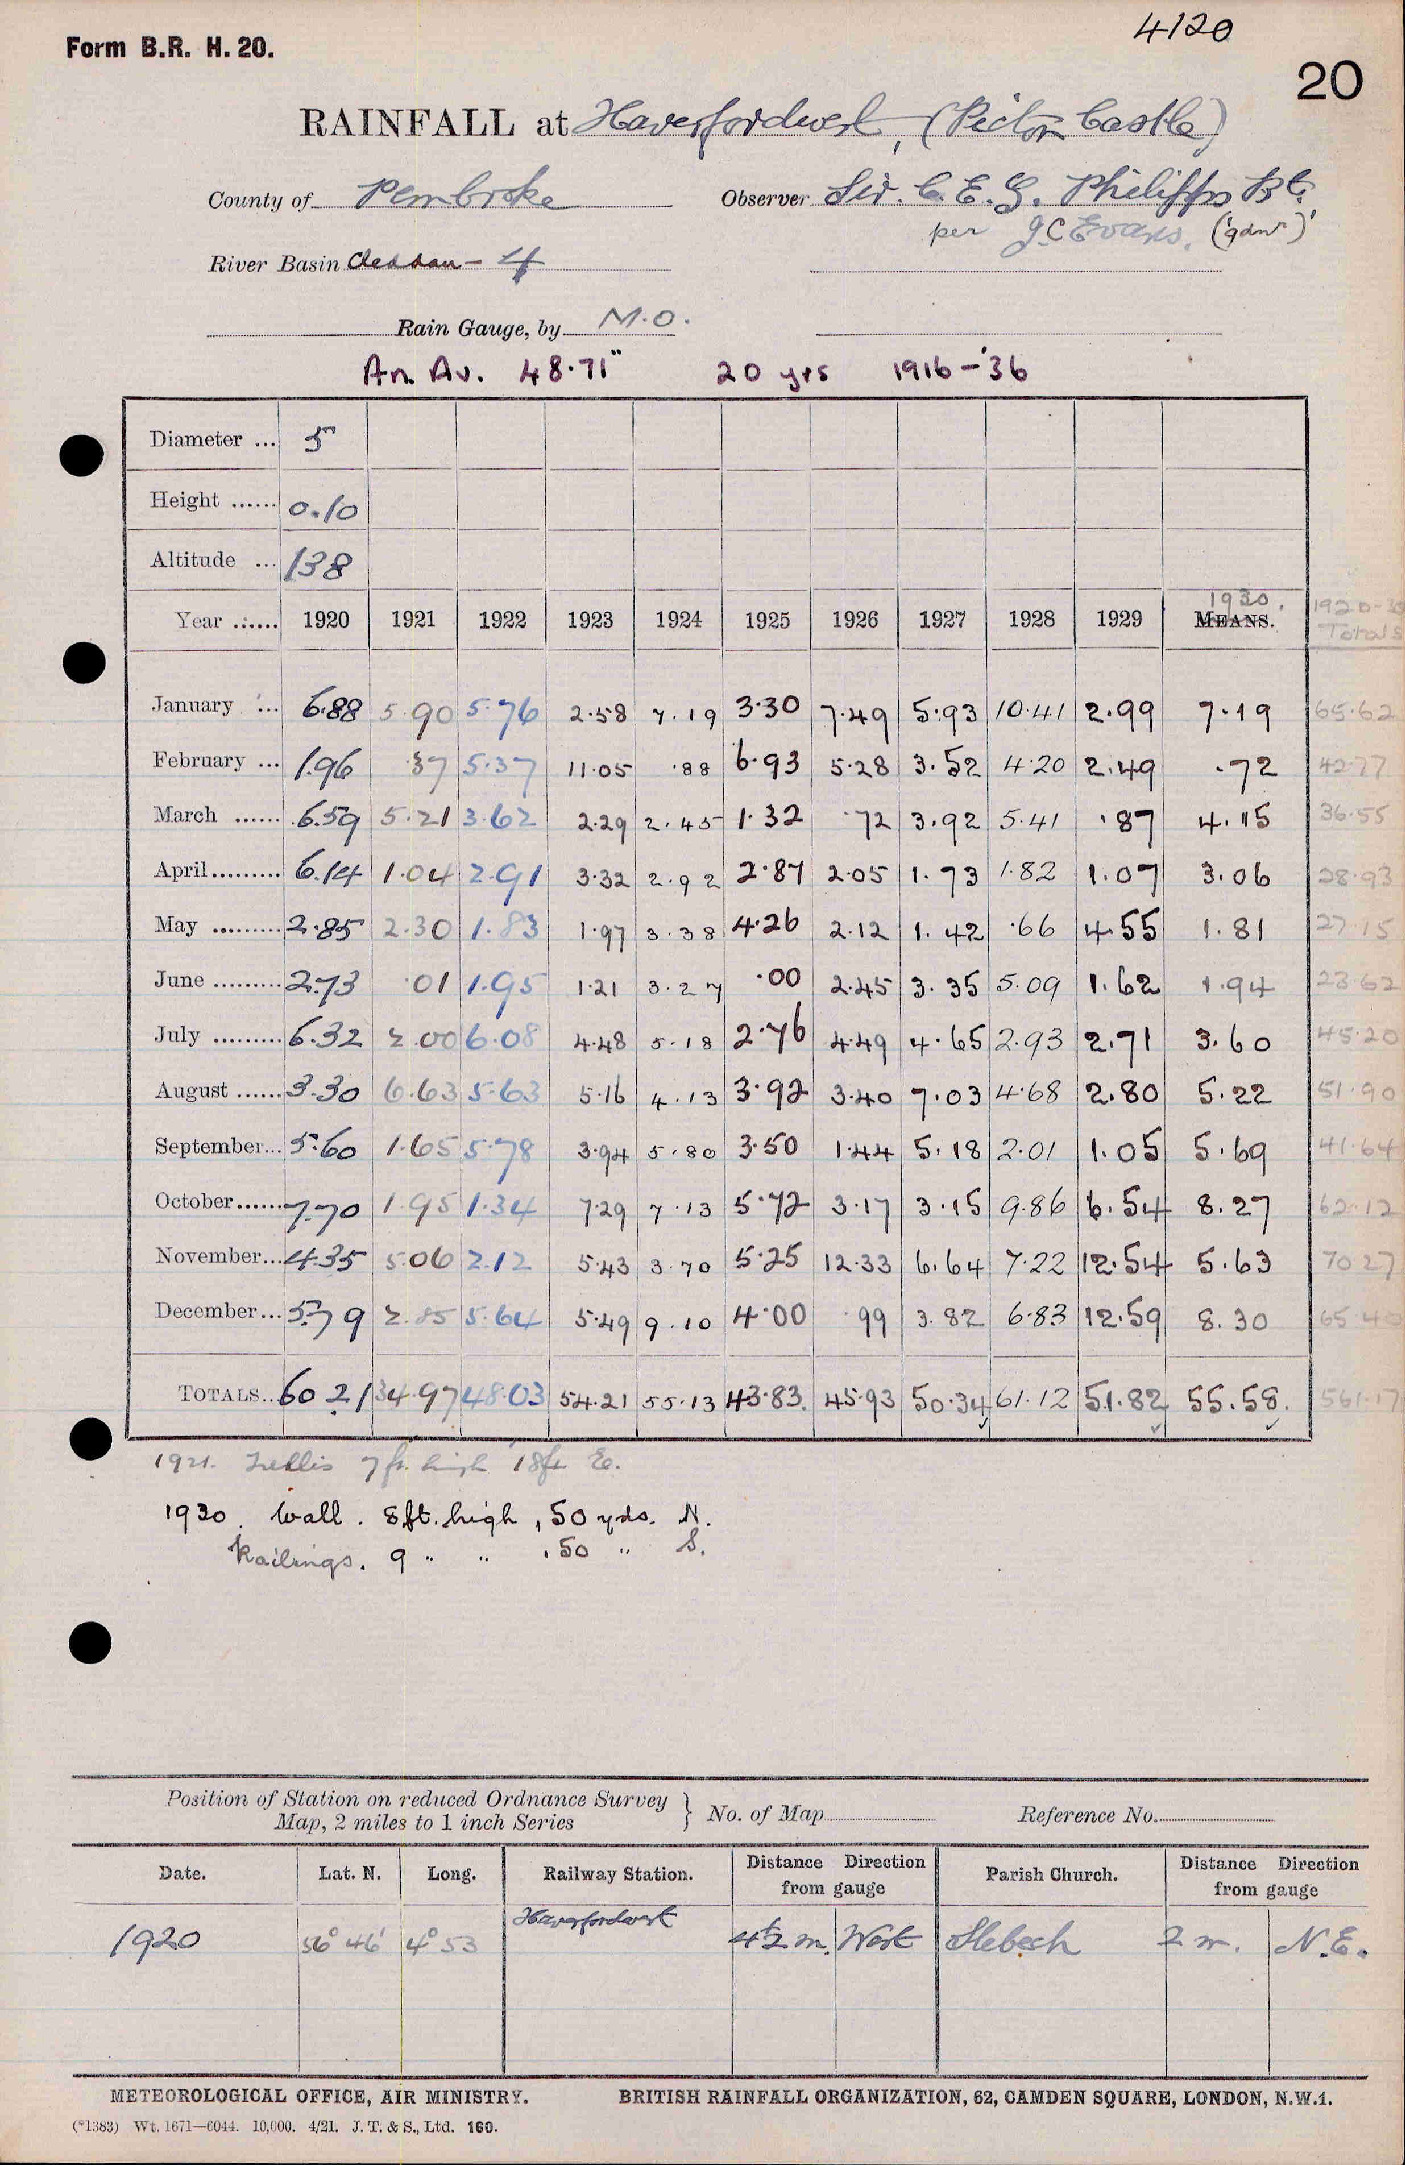 4120
Form B.R. H. 20.
20
RAINFALL at Haverfordwest, (Picton Castle)
County of Pembroke Observer Sir. C. E. G. Philipps Bt.
per J C Evans. (gdnr)
River Basin Cleddau - 4
Rain Gauge, by M.O.
An. Av. 48.71" 20 yrs 1916-'36
Diameter ... 5
Height ...... 0.10
Altitude ... 138
Year ....... 1920 1921 1922 1923 1924 1925 1926 1927 1928 1929 MEANS. 1930. 1920-30 Totals
January ... 6.88 5.90 5.76 2.58 7.19 3.30 7.49 5.93 10.41 2.99 7.19 65.62
February ... 1.96 .37 5.37 11.05 .88 6.93 5.28 3.52 4.20 2.49 .72 42.77
March ...... 6.59 5.21 3.62 2.29 2.45 1.32 .72 3.92 5.41 .87 4.15 36.55
April......... 6.14 1.04 2.91 3.32 2.92 2.87 2.05 1.73 1.82 1.07 3.06 28.93
May ......... 2.85 2.30 1.83 1.97 3.38 4.26 2.12 1.42 .66 4.55 1.81 27.15
June ......... 2.73 .01 1.95 1.21 3.27 .00 2.45 3.35 5.09 1.62 1.94 23.62
July ......... 6.32 2.00 6.08 4.48 5.18 2.76 4.49 4.65 2.93 2.71 3.60 45.20
August ...... 3.30 6.63 5.63 5.16 4.13 3.92 3.40 7.03 4.68 2.80 5.22 51.90
September... 5.60 1.65 5.78 3.94 5.80 3.50 1.44 5.18 2.01 1.05 5.69 41.64
October...... 7.70 1.95 1.34 7.29 7.13 5.72 3.17 3.15 9.86 6.54 8.27 62.12
November... 4.35 5.06 2.12 5.43 3.70 5.25 12.33 6.64 7.22 12.54 5.63 70.27
December... 5.79 2.85 5.64 5.49 9.10 4.00 .99 3.82 6.83 12.59 8.30 65.40
TOTALS.. 60.21 34.97 48.03 54.21 55.13 43.83. 45.93 50.34 61.12 51.82 55.58. 561.17
1921. Trellis 7 ft. high 18 ft E.
1930. Wall. 8ft. high, 50 yds. N.
Railings. 9 " " , 50 " S.
Position of Station on reduced Ordnance Survey
Map, 2 miles to 1 inch Series } No. of Map Reference No.
Date. Lat. N. Long. Railway Station. Distance Direction from gauge Parish Church. Distance Direction from gauge
1920 56° 46' 4° 53 Haverfordwest 4½ m. West Slebech 2 m. N.E.
METEOROLOGICAL OFFICE, AIR MINISTRY. BRITISH RAINFALL ORGANIZATION, 62, CAMDEN SQUARE, LONDON, N.W.1.
(*1383) Wt. 1671—6044. 10,000. 4/21. J. T. & S., Ltd. 160.